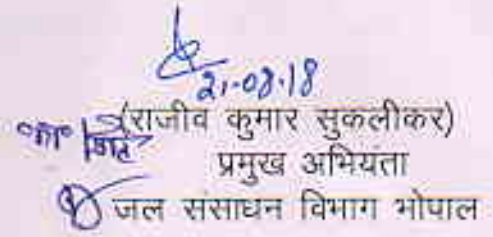 21.08.18
(राजीव कुमार सुकलीकर)
प्रमुख अभियंता
जल संसाधन विभाग भोपाल